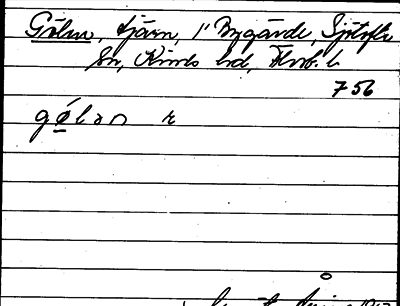 Gölen, tjärn, i Bygärde, Sjötofta
Sn, Kinds hd, Älvsb. l.
756
gǿlən r